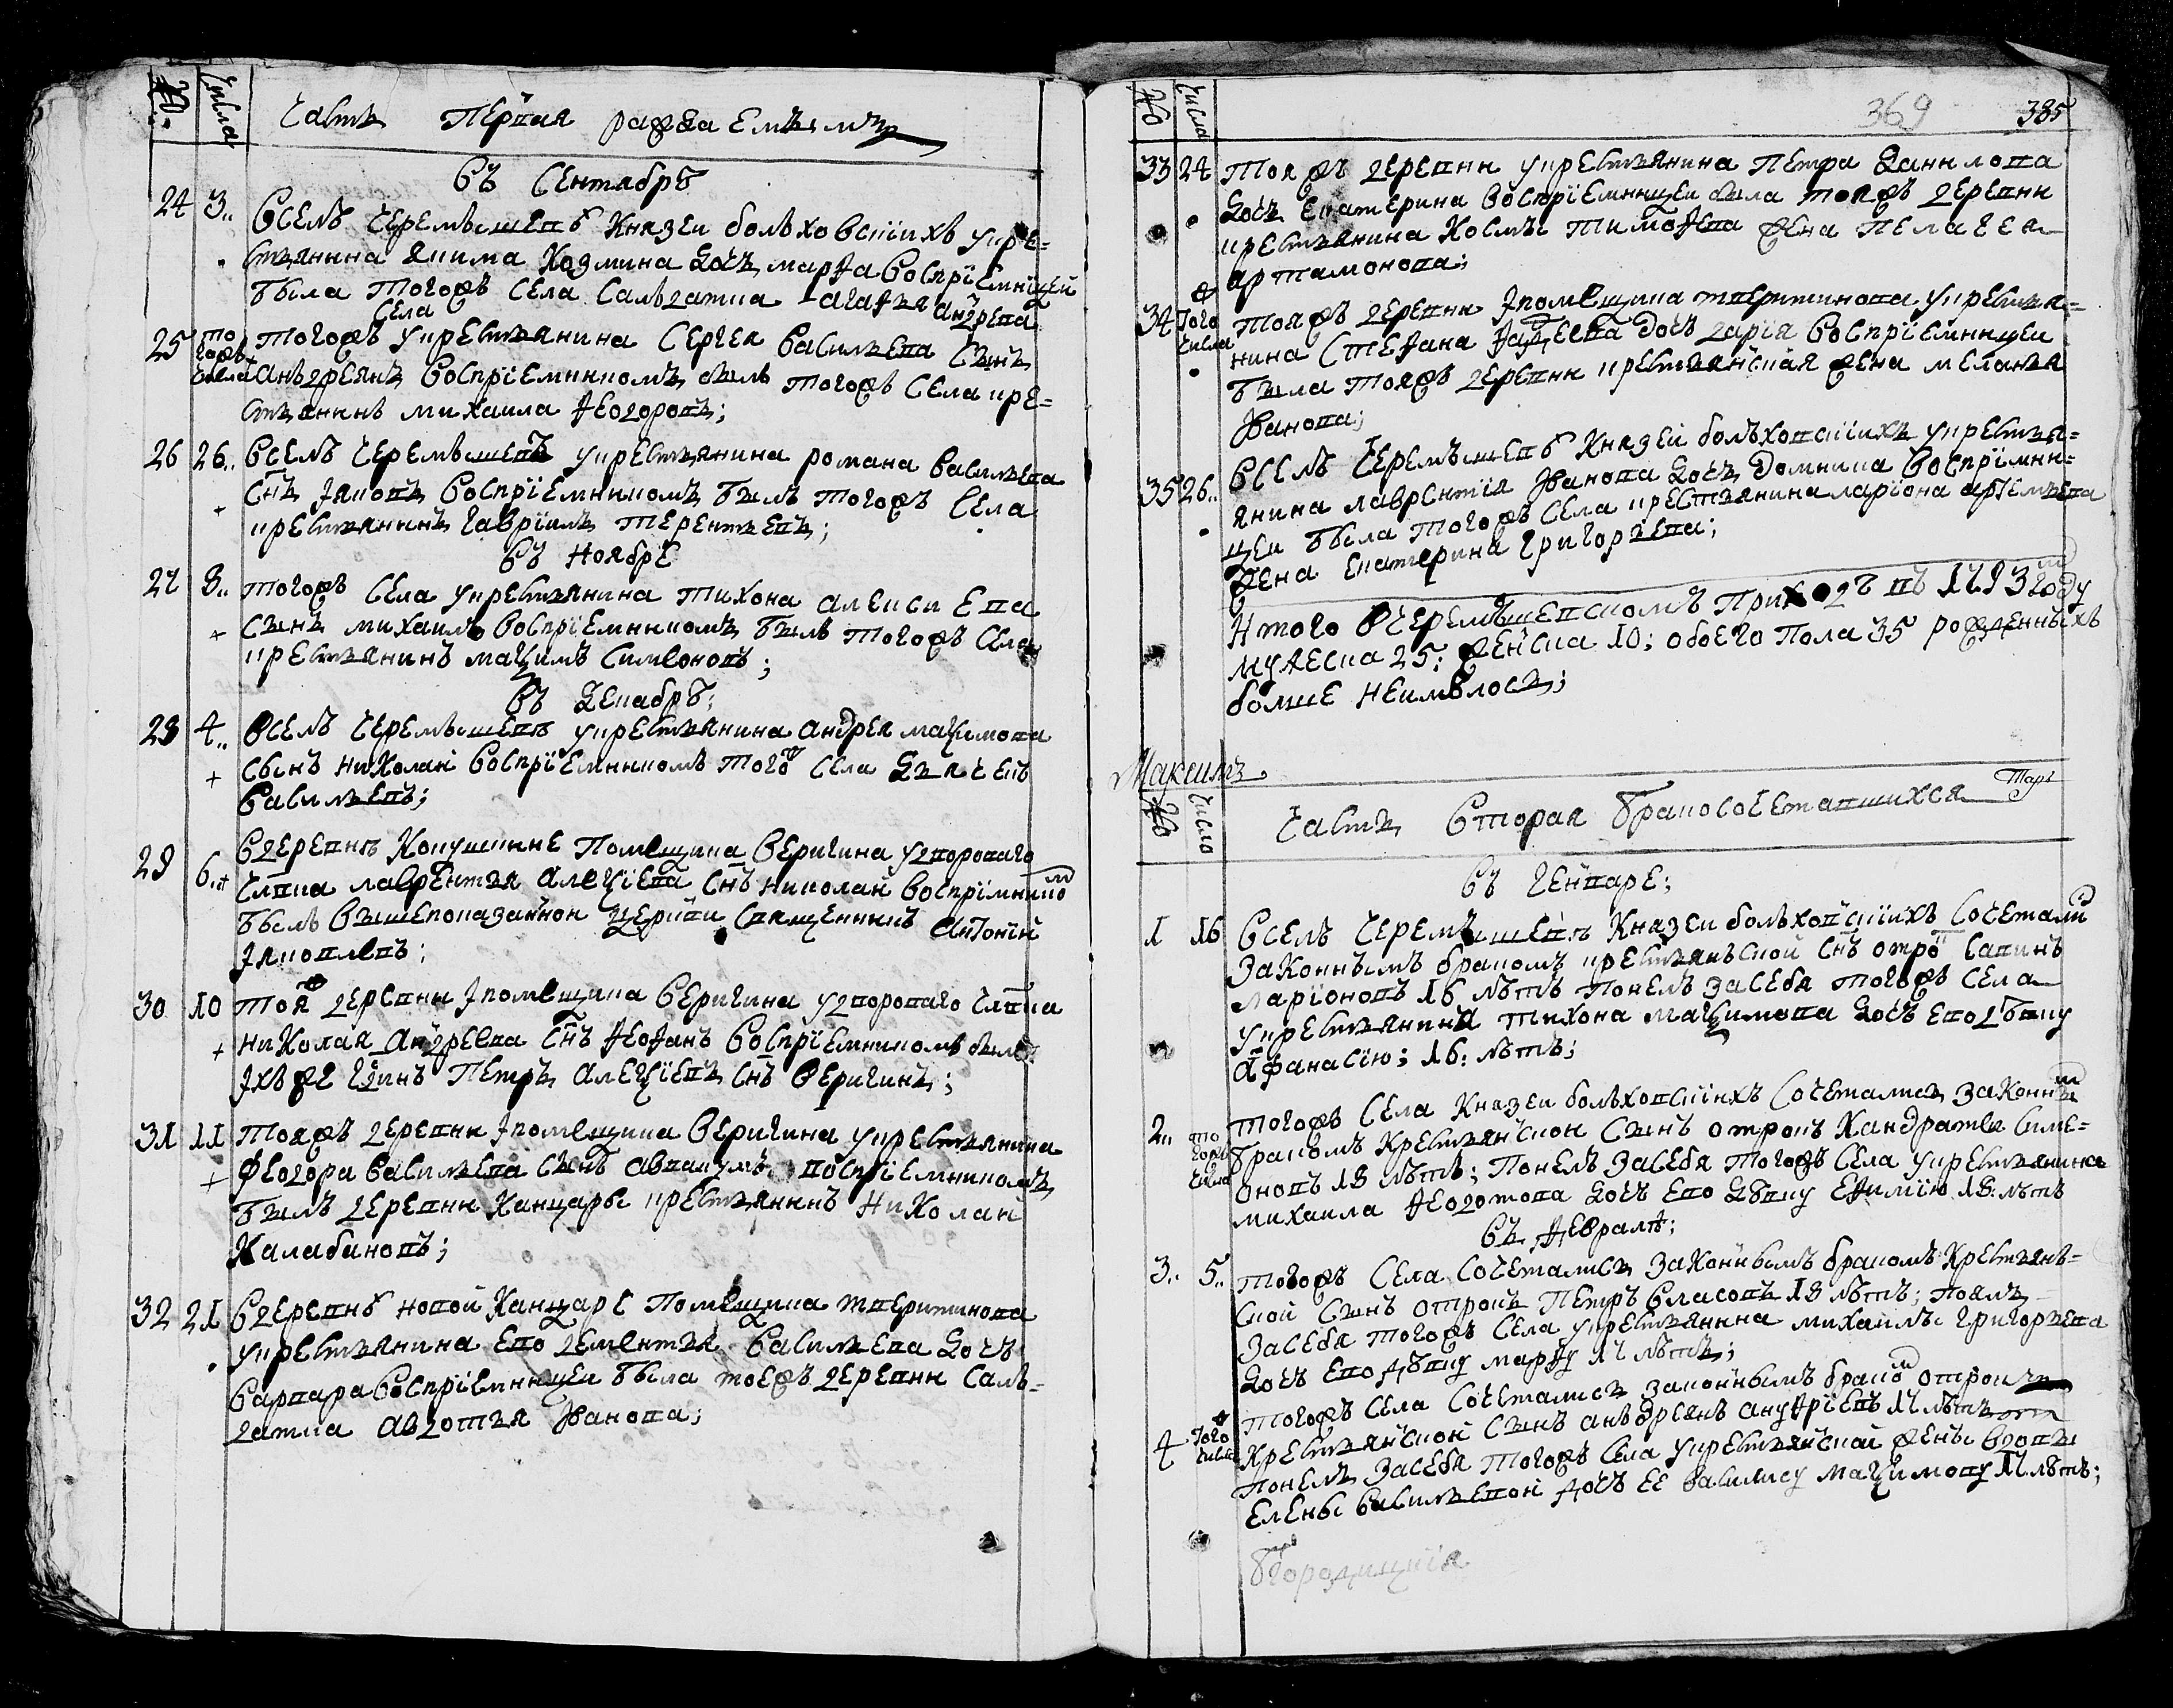 №. Числа Часть Первая раждаемымъ
въ Сентябрѣ
24 3.. Вселѣ Черемышевѣ Князей болховскихъ укре=
стьянина Якима Козмина дочь марfа воспрїемницей
была тогожъ села Салдатка агаfья андрева
села
25 тогожъ числа тогожъ укрестьянина Сергея Васильева Сынъ
Андреянъ воспрїемникомъ былъ тогожъ села кре=
стьянинъ михаила Fеодоровъ;
26 26.. Вселѣ Черемышевѣ укрестьянина романа васильева
Снъ Iяковъ воспрїемникомъ былъ тогожъ села
крестьянинъ гаврїилъ терентьевъ;
въ Ноябрѣ
27 8.. тогожъ села укрестьянина тихона алексиева
сынъ михаилъ воспрїемникомъ былъ тогожъ села
крестьянинъ маѯимъ Симеоновъ;
въ декабрѣ;
28 4.. Вселѣ Черемышевѣ укрестьянина андрея маѯимова
сынъ николаи воспрїемникомъ того села дьячекъ
васильевъ;
29 6. вдеревнѣ Кокушкине помещика веригина удворового
члвка лаврентья алеѯїева Снъ николай воспрїмнико
былъ вышепоказанной церкви священникъ антонїй
Iяковлевъ;
30 10 тоя деревни Iпомещика веригина удворового члвка
николая андреева Снъ fеоfанъ воспрїемникомъ былъ
Iхъ же гдинъ Петръ алеѯїевъ снъ веригинъ;
31 11 тояжъ деревни Iпомещика веригина укрестьянина
Феодора васильева сынъ авпакумъ воспрїемникомъ
былъ деревни Канцары крестьянинъ николаи
Калабиновъ;
32 21 вдеревнѣ новой Канцаре помещика тверитинова
укрестьянина ево дементья васильева дочь
варвара воспрїемницеи была тоежъ деревни Сал=
датка авдотья Iванова;
№ Числа 369 385
33 24 тояжъ деревни укрестьянина Петра данилова
дочь екатерина воспрїемницеи была тояжъ деревни
крестьянина Космы тимоfева жена пелагея
артамонова;
34 Того числа тояжъ деревни Iпомещика тверитинова укрестья=
нина стеfана fадеева дочь дарїя воспрїемницеи
была тояжъ деревни крестьянская жена меланья
Iванова;
35 26.. вселѣ Черемышевѣ Князей болховскихъ укрестья=
янина лаврентїя Iванова дочь Домника воспрїмни=
цеи была тогожъ села крестьянина ларїона артемьева
жена екатерина григорьева;
Итого вчеремышевскомъ приходѣ въ 1793м году
мужеска 25; женска 10; обоего пола 35 рожденныхъ
болше неимѣлось;
Максимъ.
№ Число Часть вторая бракосочетавшихся
въ генваре;
1 16 вселѣ Черемышевѣ Князеи болховскихъ сочетали
законнымъ бракомъ крестьянской снъ отро савинъ
ларїоновъ 16 лѣтъ понелъ засебя тогожъ села
укрестьянина тихона маѯимова дочь ево дѣвку
афанасїю; 16: лѣтъ;
2.. тогожъ числа тогожъ села Князеи болховскихъ сочетались законны
бракомъ крестьянской сынъ отрокъ Кандратеи симе=
оновъ 18 лѣтъ; понелъ засебя тогожъ села укрестьянина
михаила fеодотова дочь ево дѣвку еfимїю 18: лѣтъ
въ fевралѣ;
3.. 5.. тогожъ села сочетались законнымъ бракомъ крестьянъ=
ской сынъ отрокъ Петръ власовъ 18 лѣтъ; поялъ
засебя тогожъ села укрестьянина михаилы григорьева
дочь ево дѣвку марfу 17 лѣтъ;
4 Того числа тогожъ села сочетались законнымъ брако отрокъ
крестьянской сынъ андреянъ ануfрїевъ 17 лѣтъ
понелъ засебя тогожъ села укрестьянской жены вдовы
елены васильевой дочь ее василису маѯимову 17 лѣтъ;